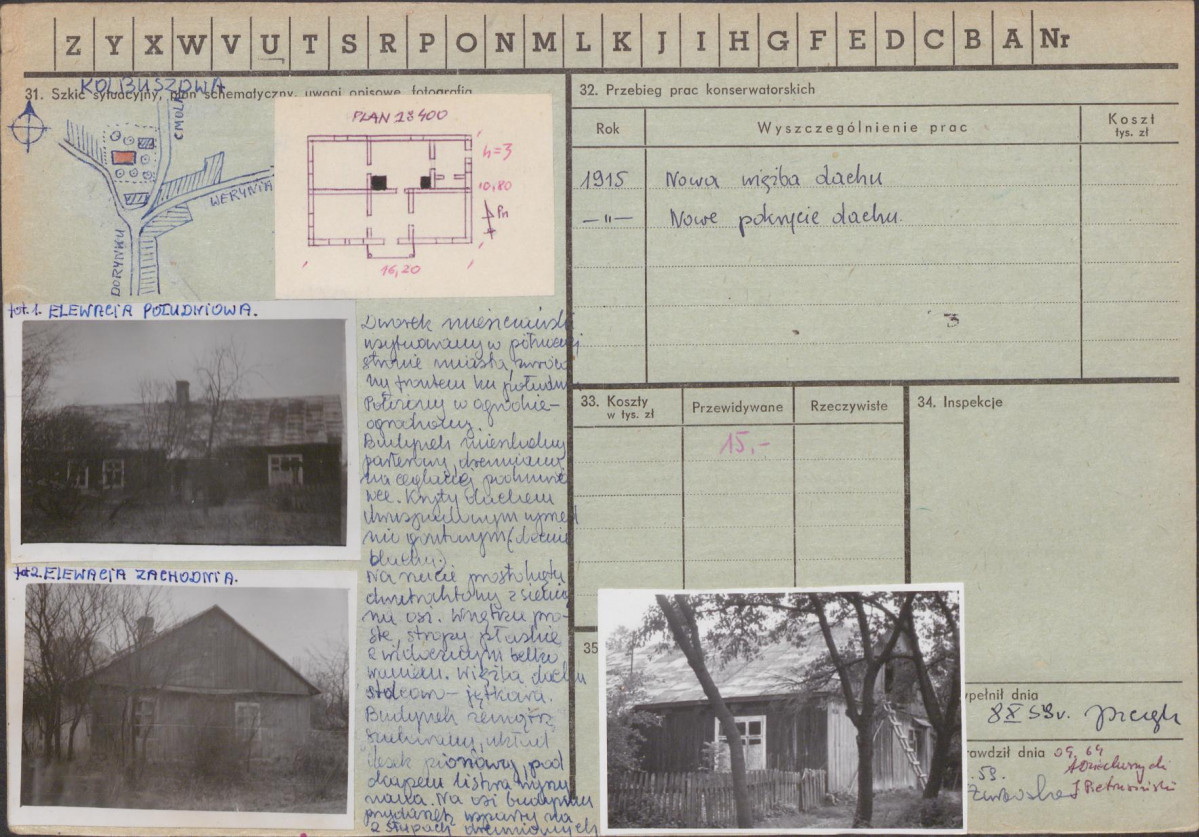 Z Y X W V U T S R P O N M L K J I H G F E D C B A Nr
31. Szkic sytuacyjny, plan schematyczny, uwagi opisowe, fotografia
KOLBUSZOWA
CMOLAS
WERYNIA
DO RYNKU
PLAN 1:400
h=3
10,80
Pn
16,20
fot. 1. ELEWACJA POŁUDNIOWA.
fot 2. ELEWACJA ZACHODNIA.
Dworek mieszczański
usytuowany w północnej
stronie miasta, zwróco
ny frontem ku południu
Położony w ogrodzie
ogrodzony.
Budynek mieszkalny
parterowy, drewniany
na ceglanej podmurów
ce. Kryty dachem
dwuspadowym uprzed
nio gontowym (obecnie
blachą.)
Na rzucie prostokąta
dwutraktowy z sienią
na osi. Wnętrza pro-
ste, stropy płaskie
z widocznym belko
waniem. Więźba dachu
stolcowo-jętkowa.
Budynek zewnątrz
szalowany, układ
desek pionowy, pod
okapem listwa
Na osi budynku
przyganek wsparty na
2 słupach drewnianych
32. Przebieg prac konserwatorskich
Rok
Wyszczególnienie prac
Koszt
tys. zł
1915 Nowa więźba dachu
—"— Nowe pokrycie dachu.
33. Koszty
w tys. zł
Przewidywane
Rzeczywiste
15,-
34. Inspekcje
35
ypełnił dnia
8 X 59 r.
rawdził dnia
09. 64
. 59.
J Pietrusiński